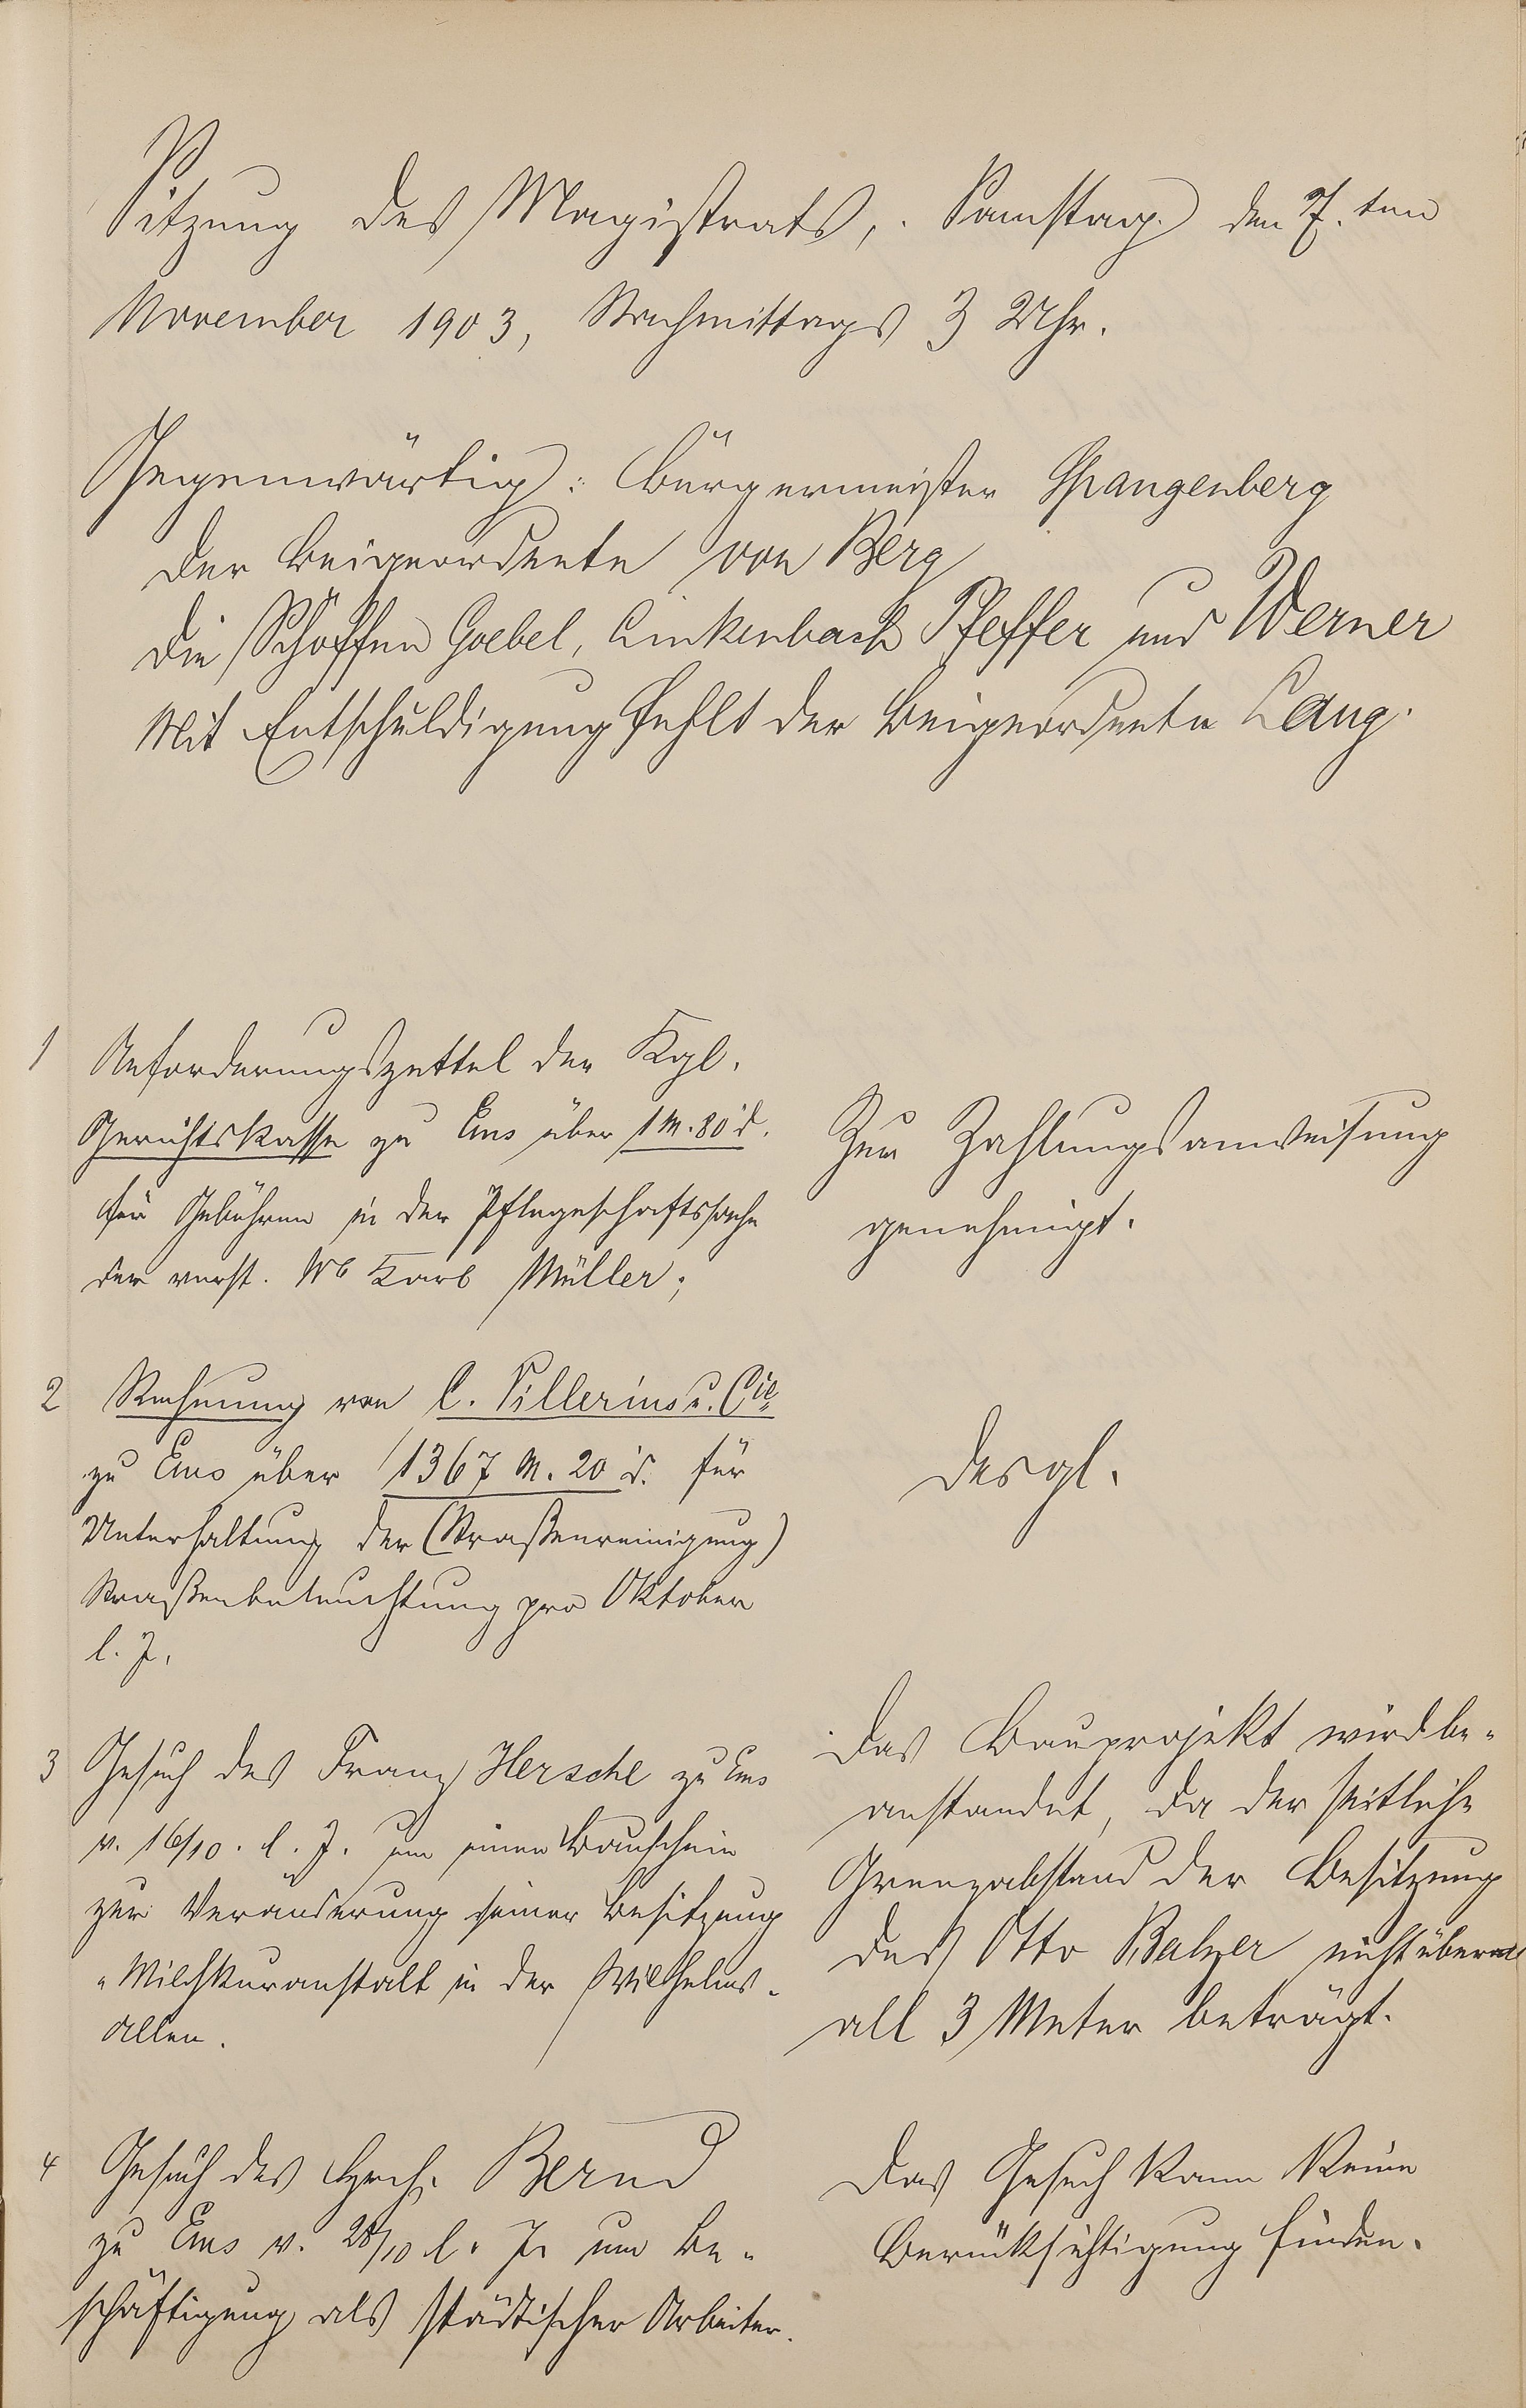 Sitzung des Magistrats, Samstag den 7.ten
November 1903, Nachmittags 3 Uhr.
Gegenwärtig: Bürgermeister Spangenberg
der Beigeordnete von Berg
die Schöffen Goebel, Linkenbach Pfeffer und Werner
Mit Entschuldigung fehlt der Beigeordnete Lang.
1 Anforderungszettel der Kgl.
Gerichtskasse zu Ems über 1 M. 80 d.
für Gebühren in der Pflegeschaftssache
der verst. Karl Müller;
Zur Zahlungsanweisung
genehmigt.
2 Rechnung von C. u. Cie
zu Ems über 1367 M. 20 d. für
Unterhaltung der (Straßenreinigung)
Straßenbeleuchtung pro Oktober
l. J.
desgl.
3 Gesuch des Franz Hersche zu Ems
v. 16/10. l. J. um einen Bauschein
zur Veränderung seiner Besitzung
"Milchkuranstalt in der Wilhelms-
allee.
Das Bauprojekt wird be-
anstandet, da der seitliche
Grenzabstand der Besitzung
des Otto Balzer nicht über
all 3 Meter beträgt.
4 Gesuch des Hrch. Bernd
zu Ems v. 28/10 l. J. um Be-
schäftigung als städtischer Arbeiter.
Das Gesuch kann keine
Berücksichtigung finden.